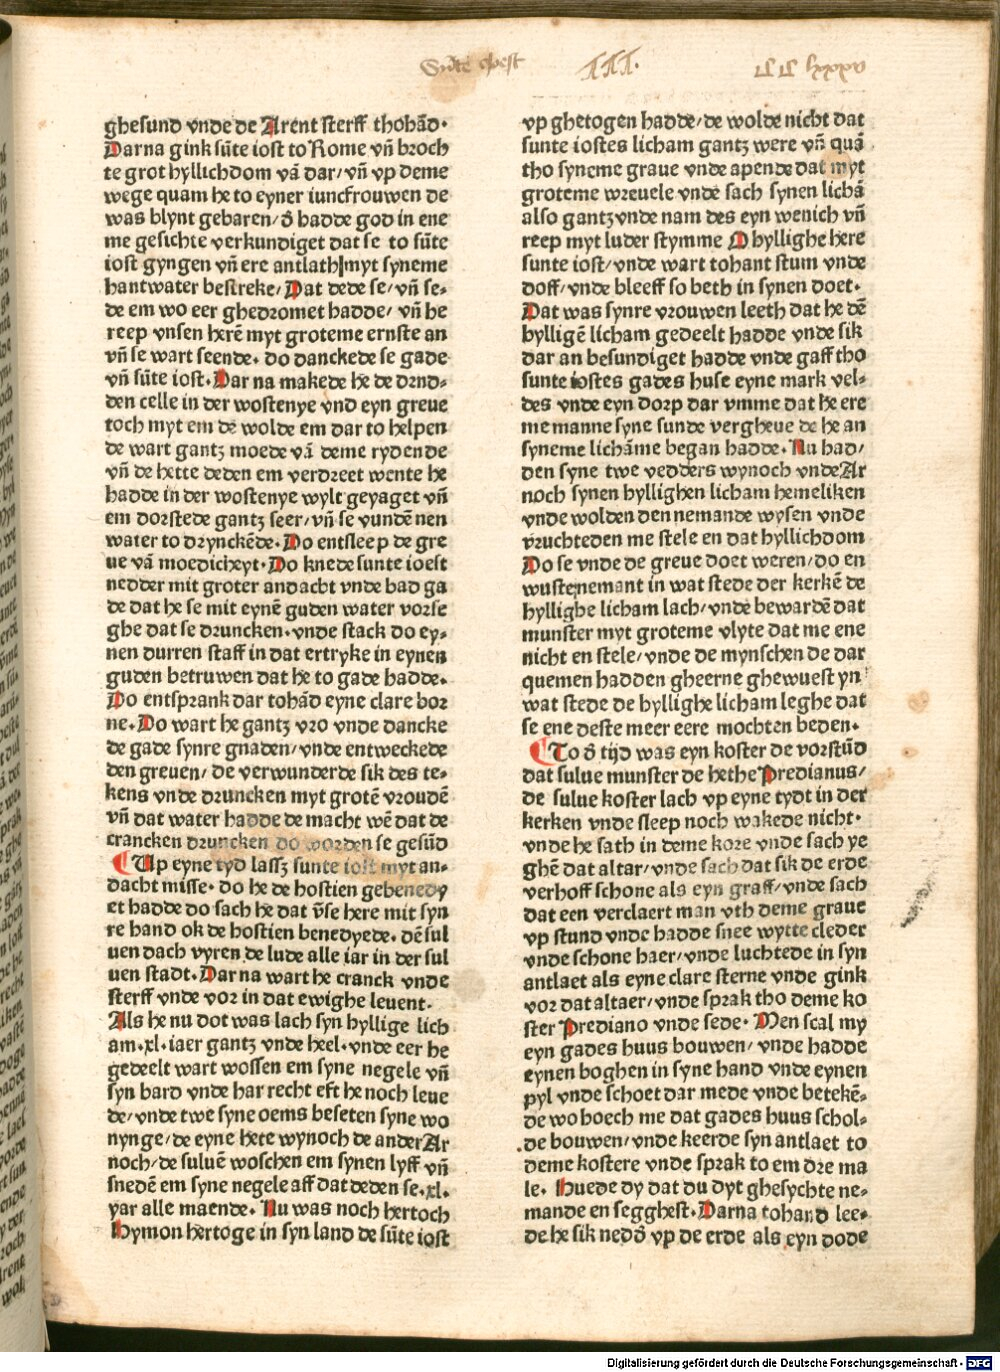 III.
lxxxv
ghesund vnde de Arent sterff thohād.
Darna gink sūte iost to Rome vn̄ broch
te grot hyllichdom vā dar/ vn̄ vp deme
wege quam he to eyner iuncfrouwen de
was blynt gebaren/ đ hadde god in ene
me gesichte verkundiget dat se to sūte
iost gyngen vn̄ ere antlath myt syneme
hantwater bestreke/ Dat dede se/ vn̄ se-
de em wo eer ghedromet hadde/ vn̄ he
reep vnsen herē myt groteme ernste an
vn̄ se wart seende. do danckede se gade
vn̄ sūte iost. Dar na makede he de drud-
den celle in der wostenye vnd eyn greue
toch myt em de wolde em dar to helpen
de wart gantz moede vā deme rydende
vn̄ de hette deden em verdreet wente he
hadde in der wostenye wylt geyaget vn̄
em dorstede gantz seer/ vn̄ se vundē nen
water to drynckēde. Do entsleep de gre
ue vā moedicheyt. Do knede sunte ioest
nedder mit groter andacht vnde bad ga
de dat he se mit eynē guden water vorse
ghe dat se druncken. vnde stack do ey-
nen durren staff in dat ertryke in eynen
guden betruwen dat he to gade hadde.
Do entsprank dar tohād eyne clare bor
ne. Do wart he gantz vro vnde dancke
de gade synre gnaden/ vnde entweckede
den greuen/ de verwunderde sik des te-
kens vnde druncken myt grotē vroudē
vn̄ dat water hadde de macht wē dat de
crancken druncken do worden se gesūd
Up eyne tyd lassz sunte iost myt an-
dacht misse. do he de hostien gebenedy
et hadde do sach he dat vn̄se here mit syn
re hand ok de hostien benedyede. dē sul
uen dach vyren de lude alle iar in der sul
uen stadt. Dar na wart he cranck vnde
sterff vnde vor in dat ewighe leuent.
Als he nu dot was lach syn hyllige lich
am .xl. iaer gantz vnde heel. vnde eer he
gedeelt wart wossen em syne negele vn̄
syn bard vnde har recht eft he noch leue
de/ vnde twe syne oems beseten syne wo
nynge/ de eyne hete wynoch de ander Ar
noch/ de suluē woschen em synen lyff vn̄
snedē em syne negele aff dat deden se .xl.
yar alle maende. Nu was noch hertoch
hymon hertoge in syn land de sūte iost
vp ghetogen hadde/ de wolde nicht dat
sunte iostes licham gantz were vn̄ quā
tho syneme graue vnde apende dat myt
groteme wreuele vnde sach synen lichā
also gantz vnde nam des eyn wenich vn̄
reep myt luder stymme O hyllighe here
sunte iost/ vnde wart tohant stum vnde
doff/ vnde bleeff so beth in synen doet.
Dat was synre vrouwen leeth dat he dē
hylligē licham gedeelt hadde vnde sik
dar an besundiget hadde vnde gaff tho
sunte iostes gades huse eyne mark vel-
des vnde eyn dorp dar vmme dat he ere
me manne syne sunde vergheue de he an
syneme lichāme began hadde. Nu had/
den syne twe vedders wynoch vnde Ar
noch synen hyllighen licham hemeliken
vnde wolden den nemande wysen vnde
vruchteden me stele en dat hyllichdom
Do se vnde de greue doet weren/ do en
wuste nemant in wat stede der kerkē de
hyllighe licham lach/ vnde bewardē dat
munster myt groteme vlyte dat me ene
nicht en stele/ vnde de mynschen de dar
quemen hadden gheerne ghewuest yn
wat stede de hyllighe licham leghe dat
se ene deste meer eere mochten beden.
To đ tijd was eyn koster de vorstūd
dat sulue munster de hethe Predianus/
de sulue koster lach vp eyne tydt in der
kerken vnde sleep noch wakede nicht.
vnde he sath in deme kore vnde sach ye
ghē dat altar/ vnde sach dat sik de erde
verhoff schone als eyn graff/ vnde sach
dat een verclaert man vth deme graue
vp stund vnde hadde snee wytte cleder
vnde schone haer/ vnde luchtede in syn
antlaet als eyne clare sterne vnde gink
vor dat altaer/ vnde sprak tho deme ko
ster Prediano vnde sede. Men scal my
eyn gades huus bouwen/ vnde hadde
eynen boghen in syne hand vnde eynen
pyl vnde schoet dar mede vnde betekē-
de wo hoech me dat gades huus schol-
de bouwen/ vnde keerde syn antlaet to
deme kostere vnde sprak to em dre ma
le. Huede dy dat du dyt ghesychte ne-
mande en segghest. Darna tohand lee-
de he sik nedđ vp de erde als eyn dode
Digitalisierung gefördert durch die Deutsche Forschungsgemeinschaft - DFG